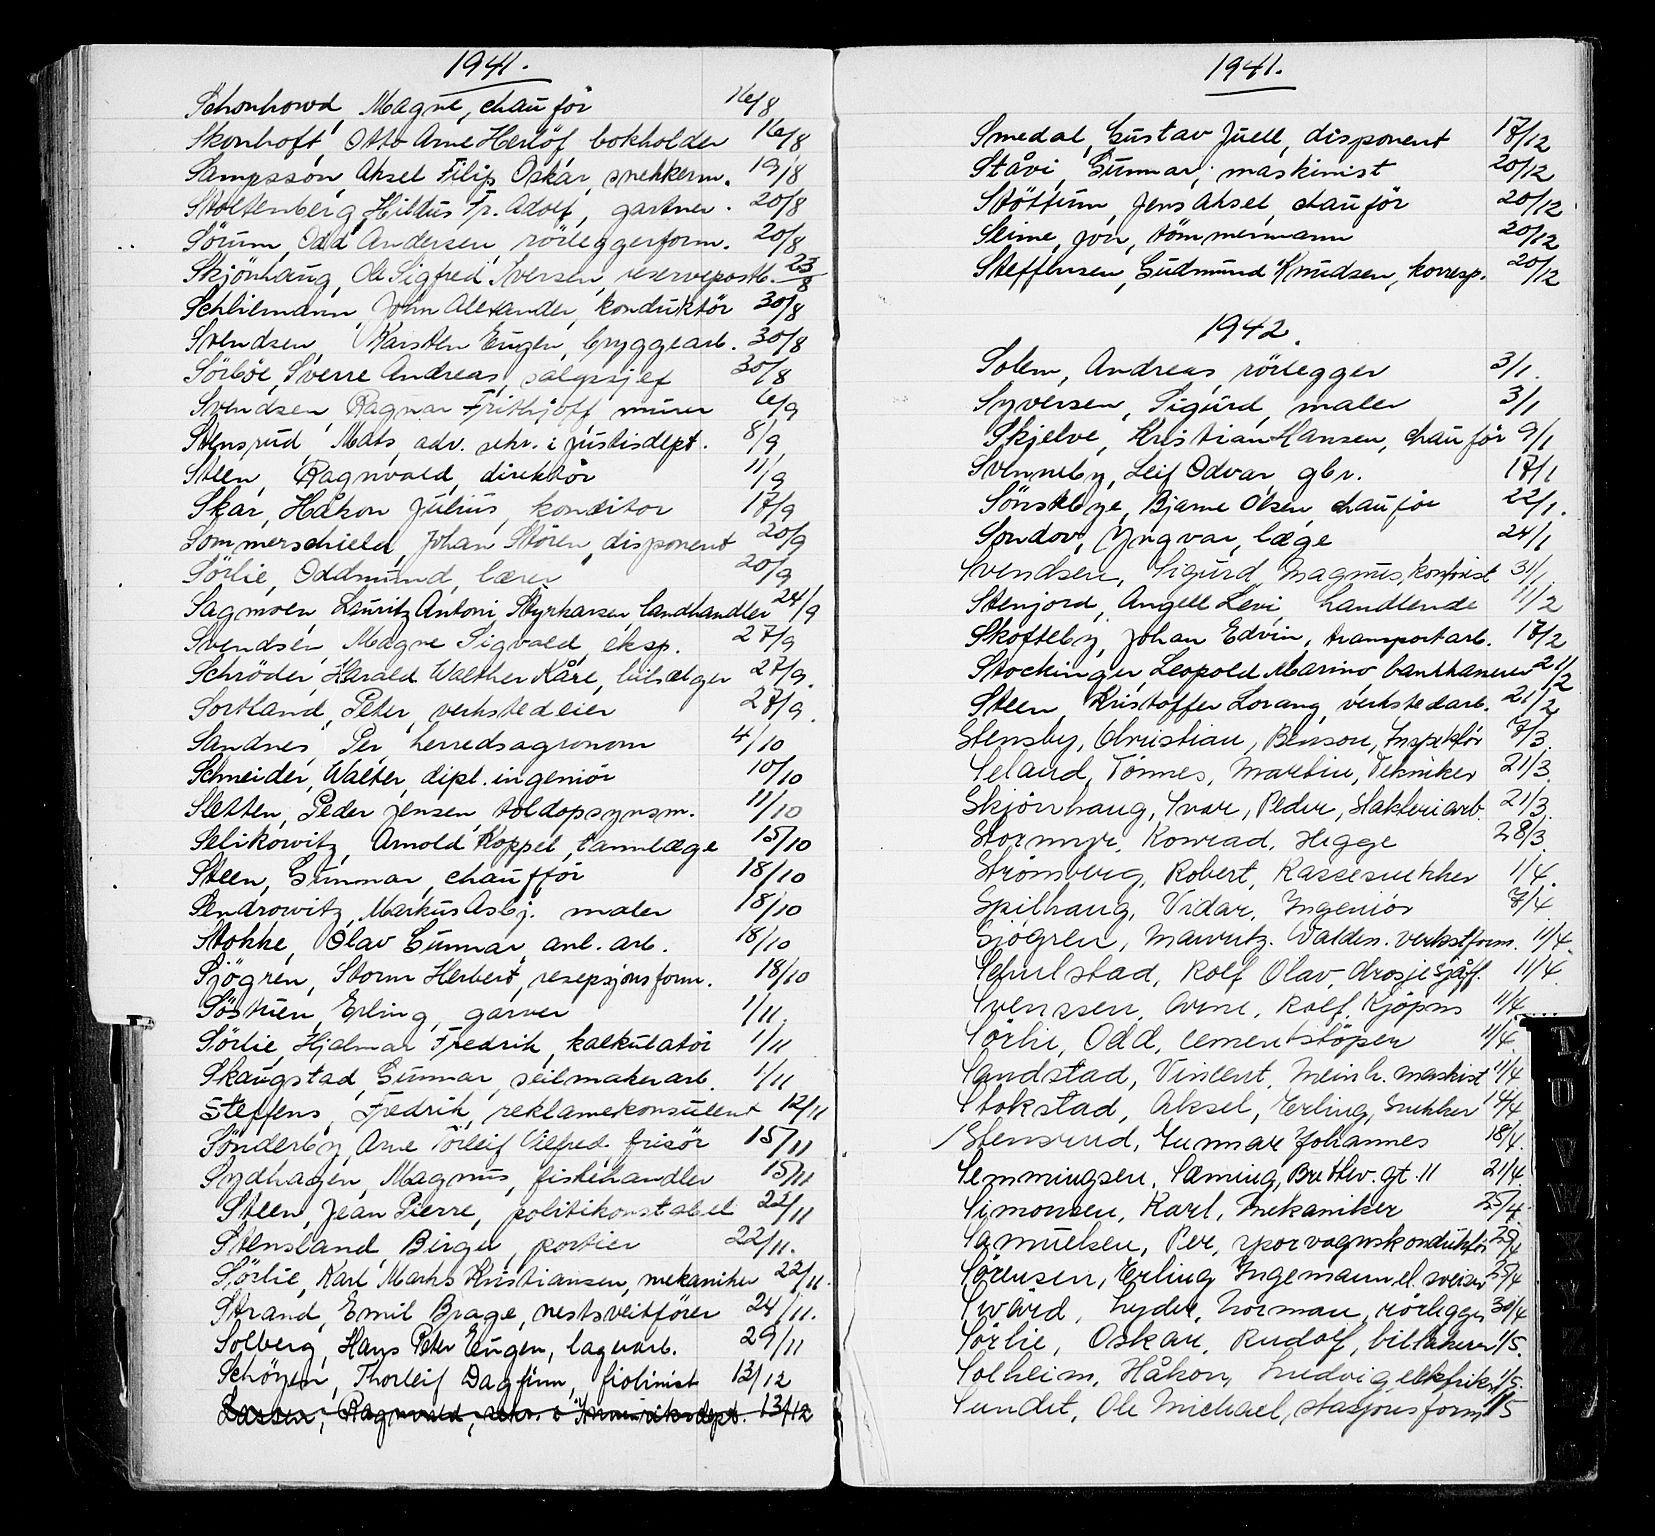 1941.
Schonhowd, Magne, chauför 16/8
Skonhoft, Otto Arne Herlöf bokholder 16/8
Sampsson, Aksel Filip Oskar, snekkerm. 19/8
Stoltenberg, Hildus Fr. Adolf, gartner. 20/8
Sörum, Odd Andersen, rörleggerform. 20/8
Skjönhaug, Ole Sigfred Iversen, reservepostb. 23/8
Schliemann John Alexander, konduktör 30/8
Svendsen, Karsten Eugen, bryggearb. 30/8
Sörböe, Sverre Andreas, salgssjef 30/8
Svendsen, Ragnar Frithjoff, murer 6/9
Stensrud, Mats, adv. sekr. i justisdept. 8/9
Steen, Ragnvald, direktör 11/9
Skar, Håkon Julius, konditor 17/9
Sommerschield, Johan Stören, disponent 20/9
Sörlie, Oddmund, lærer 20/9
Sagmoen, Lauritz Antoni Styrkarsen, landhandler 24/9
Svendsen, Magne Sigvald, eksp. 27/9
Schröder, Harald Walther Kåre, bilselger 27/9.
Sortland, Peter, verkstedeier 27/9.
Sandnes, Per, herredsagronom 4/10
Schneider, Walter, dipl. ingeniör 10/10
Sletten, Peder Jensen, toldopsynsm. 11/10
Selikowitz, Arnold Koppel, tannlæge 15/10
Steen, Gunnar, chaufför 18/10
Sendrowitz, Markus Asbj. maler 18/10
Stokke, Olav Gunnar, anl. arb. 18/10
Sjögren, Storm Herbert, resepsjonsform. 18/10
Söstuen, Erling, garver 1/11.
Sörlie, Hjalmar Fredrik, kalkulatör 1/11
Skaugstad, Gunnar, seilmakerarb. 1/11
Steffens, Fredrik, reklamekonsulent 12/11
Sönderby, Arne Torleif Vilfred, frisör 15/11
Sydhagen, Magnus, fiskehandler 15/11
Steen, Jean Pierre, politikonstabel 22/11
Stensland, Birger, portier 22/11.
Sörlie, Karl Marks Kristiansen, mekaniker 22/11.
Strand, Emil Brage, restsveitförer 24/11.
Solberg, Hans Peter Eugen, lagerarb. 29/11
Schöyen, Thorleif Dagfinn, fiolinist 13/12
Lassen, Ragnvald, sekr. i Innenriksdept. 13/12
1941.
Smedal, Gustav Juell, disponent 17/12
Ståvi, Gunnar, maskinist 20/12
Stötfum, Jens Aksel, chauför 20/12
Seime, Jon, tömmermann 20/12
Steffensen, Gudmund Knudsen, korresp. 20/12
1942.
Solem, Andreas rörlegger 3/1.
Syversen, Sigurd, maler 3/1
Skjelve, Kristian Hansen, chauför 9/1
Svenneby, Leif Odvar, gbr. 17/1
Sönstebye, Bjarne Olsen, chauför 22/1.
Sondov, Yngvar, læge 24/1
Svendsen, Sigurd Magnus, kontorist 31/1
Stenjord, Angell Levi, handlende 11/2
Skofteby, Johan Edvin, transportarb. 17/2
Stockinger, Leopold Marino bankkaserer 21/2
Steen, Kristoffer Lorang, verkstedarb. 21/2
Stensby, Christian, Benson, Inspektör 7/3
Seland, Tönnes, Martin, Tekniker 21/3.
Skjönhaug, Ivar, Peder, Slakteriarb. 21/3.
Stormyr, Konrad, Hegge 28/3.
Strömberg, Robert, Kassesnekker 1/4.
Spilhaug, Vidar, Ingeniör 7/4
Sjögren, Mauritz. Valdn. verkstform. 11/4.
Schulstad, Rolf Olav, drosjesjåf. 11/4
Svenssen, Arne, Rolf, Kjöpm 11/4
Sörlie, Odd, cementstöper 11/4
Sandstad, Vincent, Meinh. maskist 11/4
Stokstad, Aksel, Erling, Snekker 14/4
Stensrud, Gunnar Johannes 18/4
Semmingsen, Sæming, Buthlev. gt. 11 21/4.
Simonsen, Karl, Mekaniker 25/4.
Samuelsen, Per, sporvognskonduktör 29/4
Sörensen, Erling Ingemann, el. sveiser 29/4
Swärd, Lyder, Norman, rörlegger 30/4
Sörlie, Oskar, Rudolf, billakerer 1/5.
Solheim, Håkon, Ludvig, elektriker 1/5.
Sundet, Ole Michael, stasjonsform 1/5
T
U
V
W
X
Y
Z
Æ
Ø